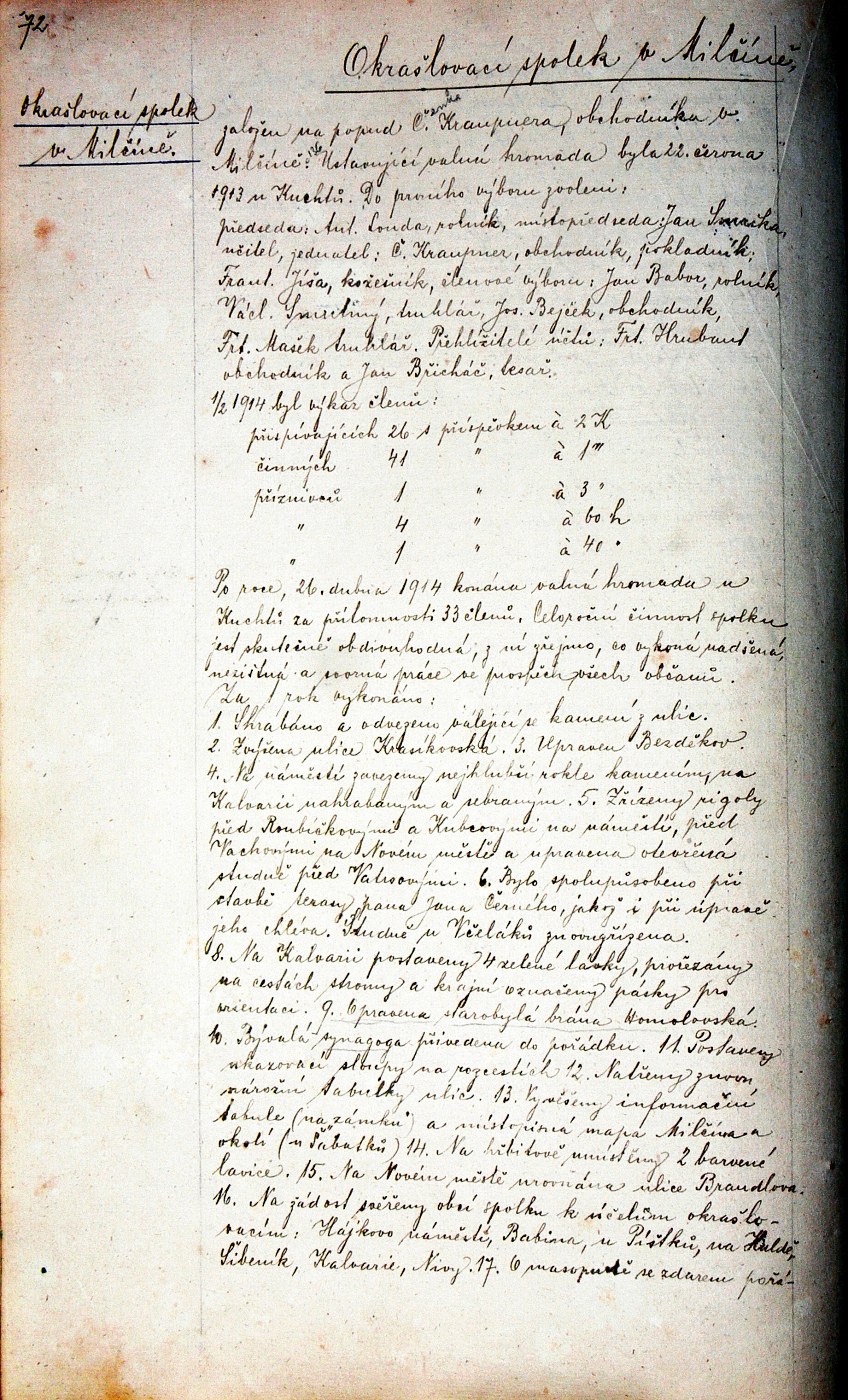 72
Okrašlovací spolek v Milčíně.
Okrašlovací spolek
v Milčíně.
založen na popud Č. Kraupnera, obchodníka v
Milčíně. Ustavující valná hromada byla 22. června
1913 u Kuchtů. Do prvního výboru zvoleni:
předseda: Ant. Londa, rolník, místopředseda: Jan Smrčka,
učitel, jednatel: Č. Kraupner, obchodník, pokladník:
Frant. Jíša, kožešník, členové výboru: Jan Babor, rolník,
Václ. Smutný, truhlář, Jos. Bejček, obchodník,
Frt. Mašek truhlář. Přehlížitelé účtů: Frt. Hrubant
obchodník a Jan Břicháč, tesař.
1/2 1914 byl výkaz členů:
přispívajících 26 s příspěvkem à 2 K
činných 41 " à 1 "
příznivců 1 " à 3 "
" 4 " à 60 h
" 1 " à 40 "
Po roce, 26. dubna 1914 konána valná hromada u
Kuchtů za přítomnosti 33 členů. Celoroční činnost spolku
jest skutečně obdivuhodná, z ní zřejmo, co vykoná nadšená,
nezištná a svorná práce ve prospěch všech občanů.
Za 1 rok vykonáno:
1. Shrabáno a odvezeno válející se kamení z ulic.
2. Zvýšena ulice Krasíkovská. 3. Upraven Bezděkov.
4. Na náměstí zavezeny nejhlubší rokle kamením, na
Kalvarii nahrabaným a sebraným. 5. Zřízeny rigoly
před Roubíčkovými a Kubcovými na náměstí, před
Vachovými na Novém městě a upravena otevřená
studně před Vatisovými. 6. Bylo spolupůsobeno při
stavbě terasy pana Jana Černého, jakož i při úpravě
jeho chléva. Studně u Včeláků znovuzřízena.
8. Na Kalvarii postaveny 4 zelené lávky, prořezány
na cestách stromy a krajní označeny pásky pro
orientaci. 9. Opravena starobylá brána Homolovská.
10. Bývalá synagoga přivedena do pořádku. 11. Postaveny
ukazovací sloupy na rozcestích 12. Natřeny znovu
nárožní tabulky ulic. 13. Vyvěšeny informační
tabule (na zámku) a místopisná mapa Milčína a
okolí (u Sabatků) 14. Na hřbitově umístěny 2 barvené
lavice. 15. Na Novém městě urovnána ulice Brandlova.
16. Na žádost svěřeny obcí spolku k účelům okrašlo-
vacím: Hájkovo náměstí, Babina, u Píštků, na Huldě,
Šibeník, Kalvarie, Nivy. 17. O masopustě se zdarem pořá-